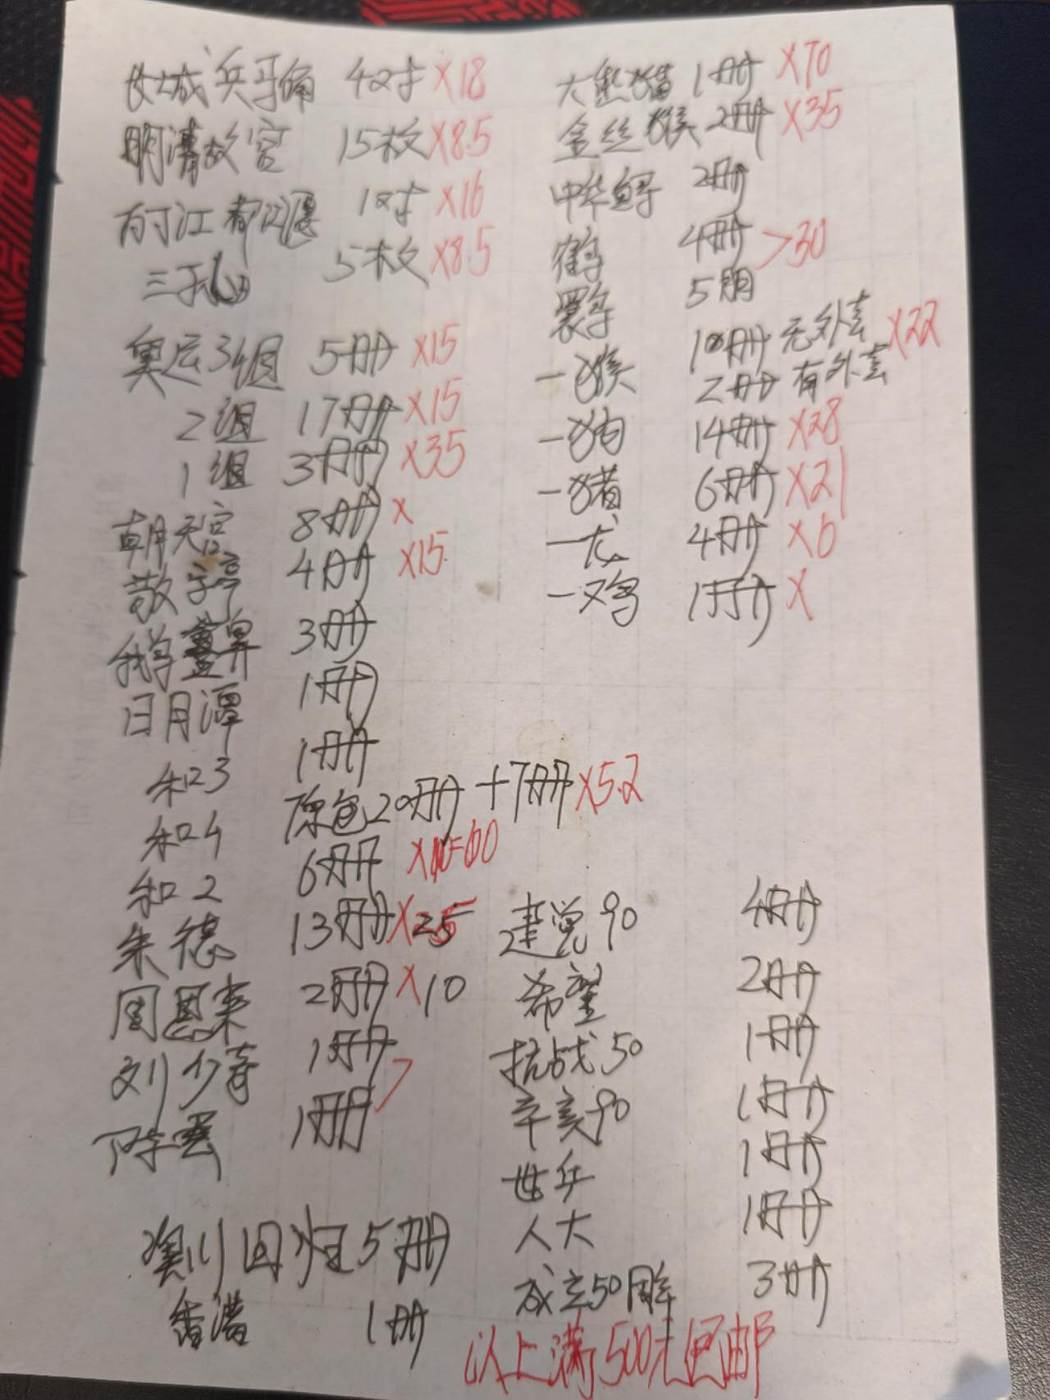 长城 兵马俑 4对 X18
明清故宫 15枚 X8.5
都江堰 1对 X16
三孔 5枚 X8.5
奥运3组 5册 X15
2组 17册 X15
1组 3册 X35
朝天宫 8册 X
敬字亭 4册 X15
鹅銮鼻 3册
日月潭 1册
和3 1册
和4 原包20册 +7册 X5.2
和2 6册
朱德 13册 X25
周恩来 2册 X10
刘少奇 1册
陈云 1册
澳门回归 5册
香港 1册
大熊猫 1册 X70
金丝猴 2册 X35
中华鲟 2册
鹤 4册 >30
5册
一猴 10册 无外套 X22
2册 有外套
一狗 14册 X28
一猪 6册 X21
一龙 4册 X6
一鸡 1册 X
建党90 4册
希望 2册
抗战50 1册
辛亥90 1册
世乒 1册
人大 1册
成立50周年 3册
以上满500元包邮